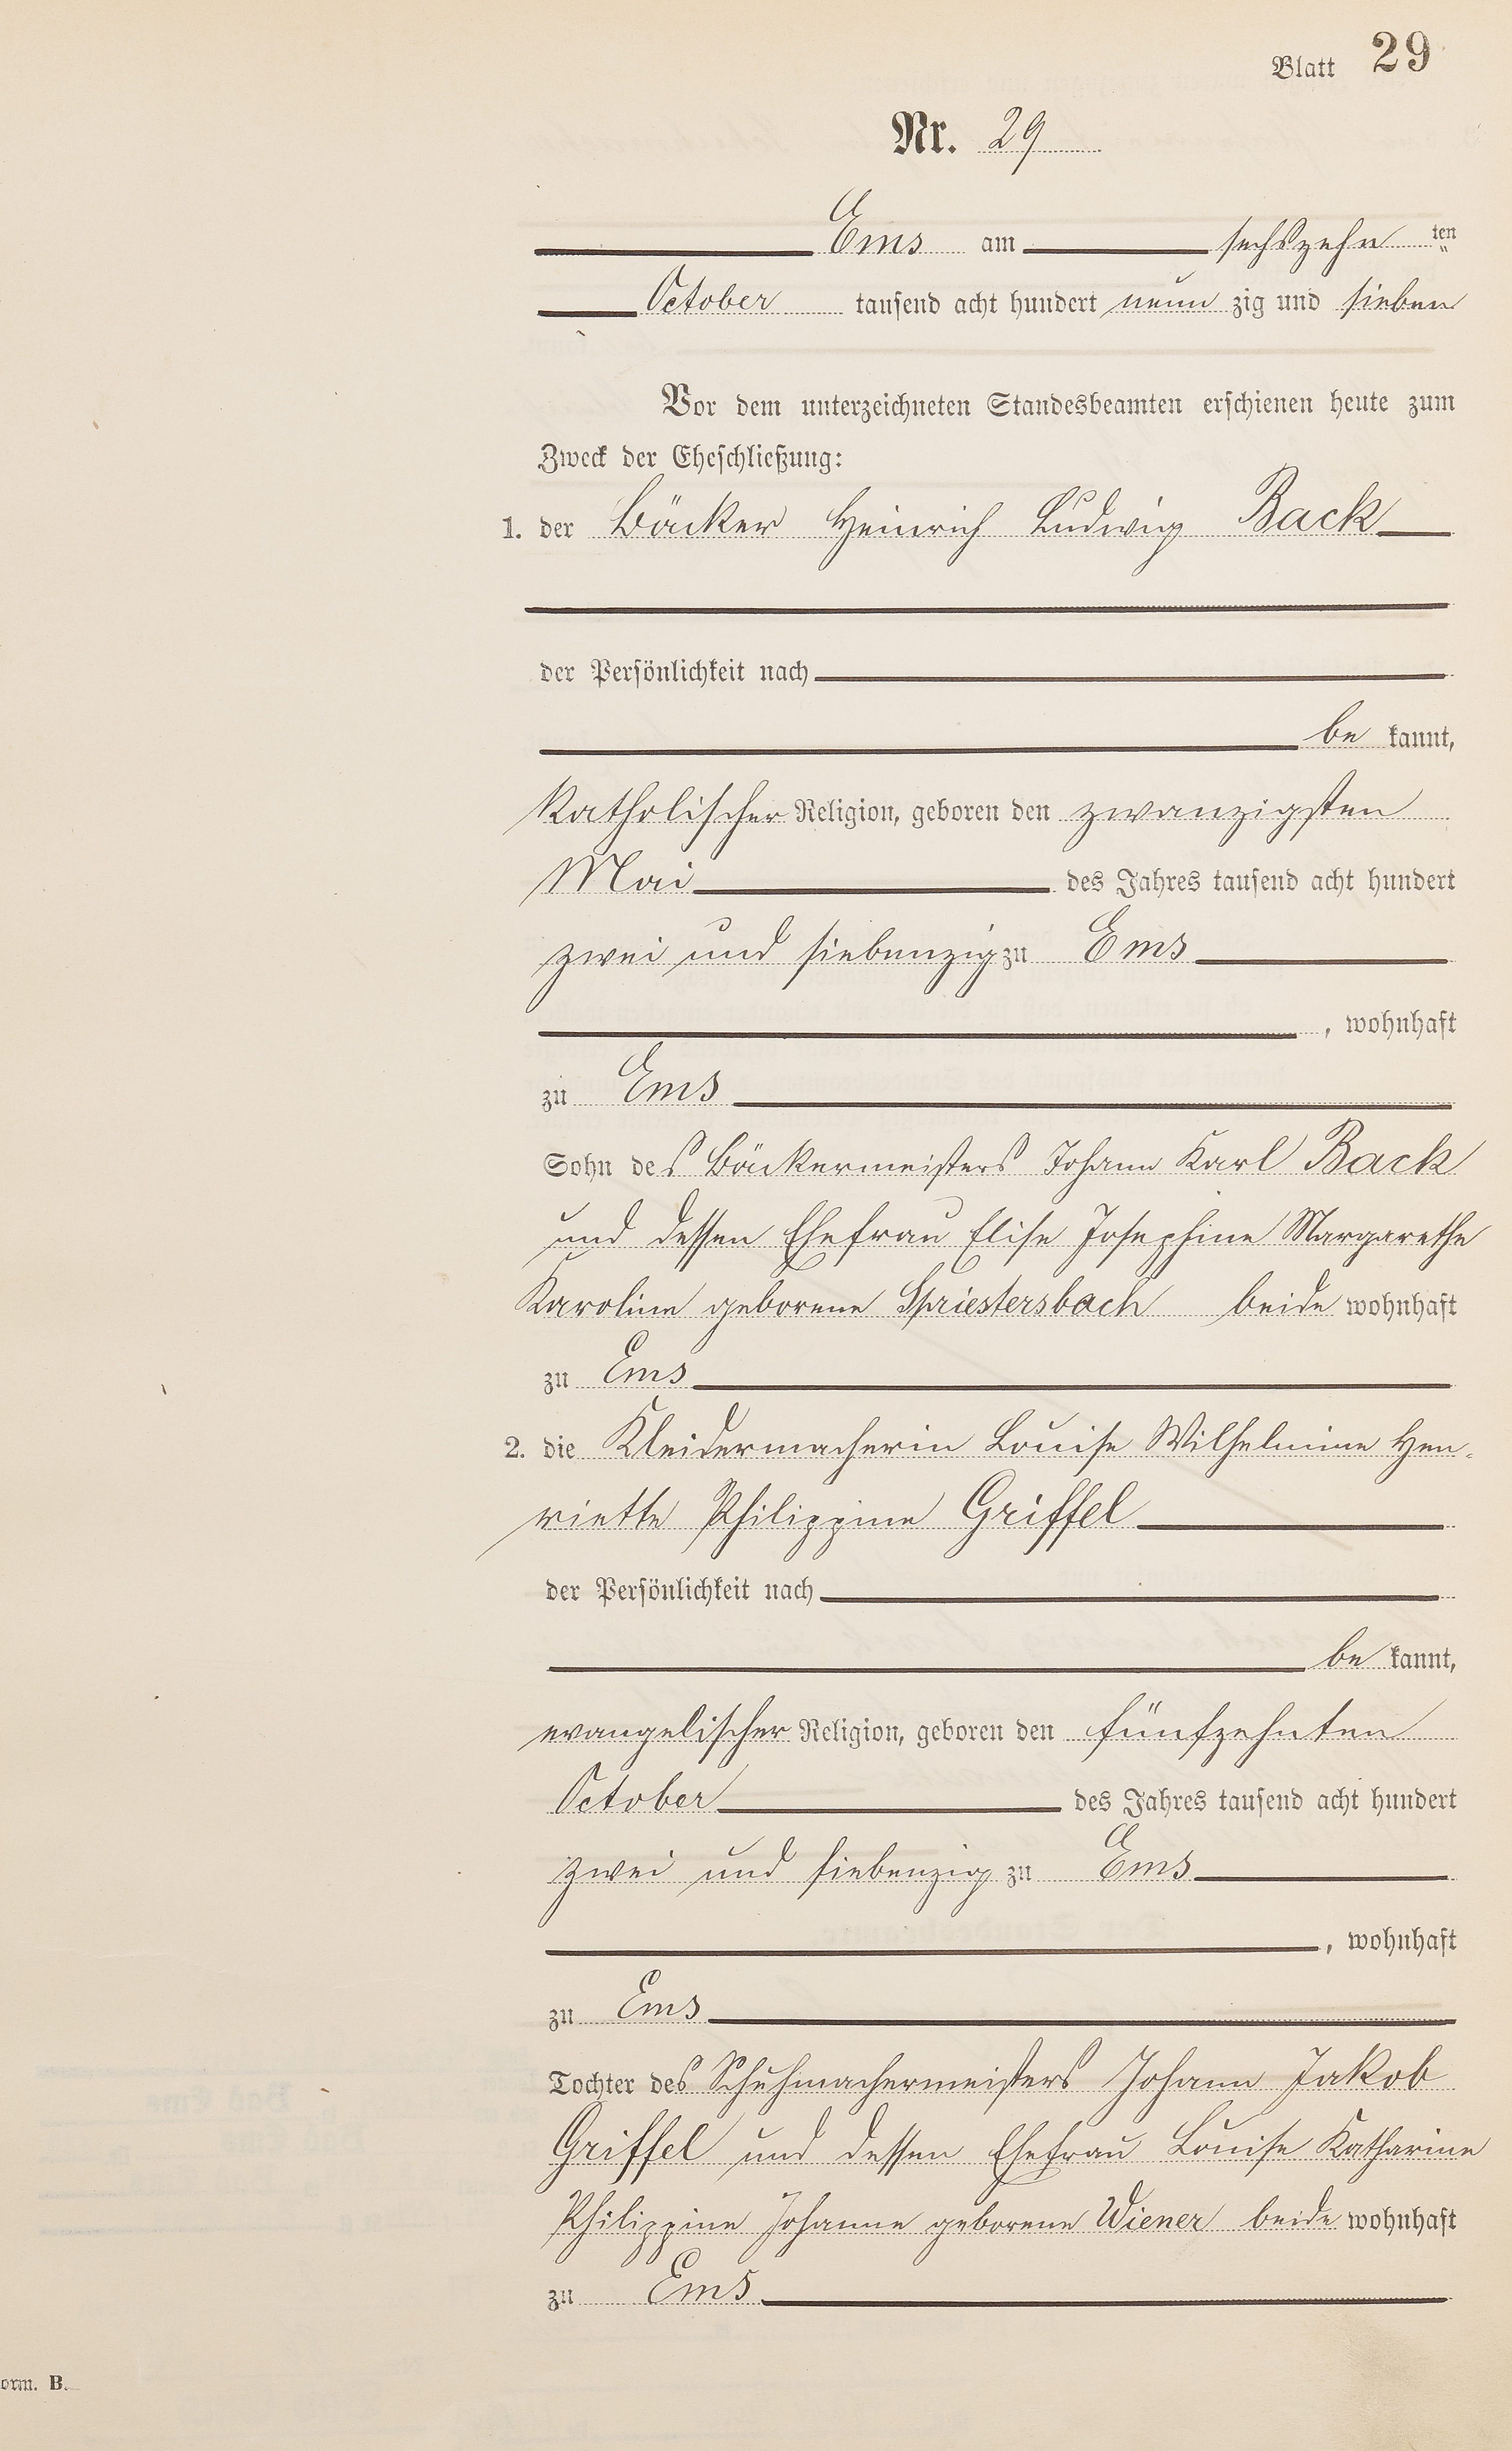 Blatt 29
Nr. 29
Ems am sechszehn ten
October tausend acht hundert neun zig und sieben
Vor dem unterzeichneten Standesbeamten erschienen heute zum
Zweck der Eheschließung:
1. der Bäcker Heinrich Ludwig Back
der Persönlichkeit nach
be kannt,
katholischer Religion, geboren den zwanzigsten
Mai des Jahres tausend acht hundert
zwei und siebenzig zu Ems
, wohnhaft
zu Ems
Sohn des Bäckermeisters Johann Karl Back
und dessen Ehefrau Elise Josephine Margarethe
Karoline geborene Spriestersbach beide wohnhaft
zu Ems
2. die Kleidermacherin Louise Wilhelmine Hen-
riette Philippine Griffel
der Persönlichkeit nach
be kannt,
evangelischer Religion, geboren den fünfzehnten
October des Jahres tausend acht hundert
zwei und siebenzig zu Ems
, wohnhaft
zu Ems
Tochter des Schuhmachermeisters Johann Jakob
Griffel und dessen Ehefrau Louise Katharine
Philippine Johanne geborene Wiener beide wohnhaft
zu Ems
orm. B.